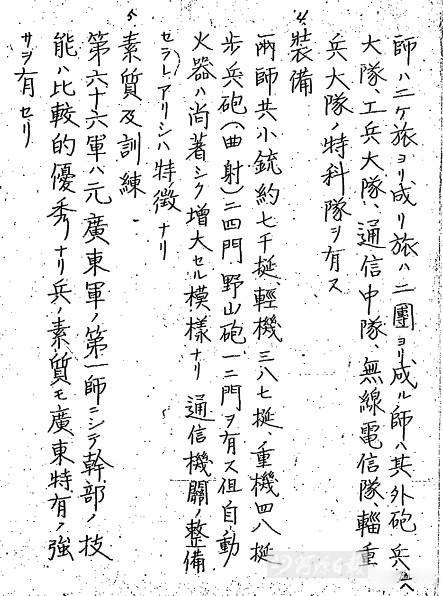 師ハ二ケ旅ヨリ成リ旅ハ二團ヨリ成ル師ハ其外砲兵
大隊、工兵大隊、通信中隊、無線電信隊輜重
兵大隊ノ特科隊ヲ有ス
4、裝備
兩師共小銃約七千挺、輕機三八七挺、重機四八挺
步兵砲(曲射)二四門野山砲一二門ヲ有ス但自動
火器ハ尚著シク増大セル模樣ナリ 通信機關ノ整備
セラレアリシハ特徴ナリ
5、素質及訓練
第六十六軍ハ元廣東軍ノ第一師ニシテ幹部ノ技
能ハ比較的優秀ナリ兵ノ素質モ廣東特有ノ強
サヲ有セリ